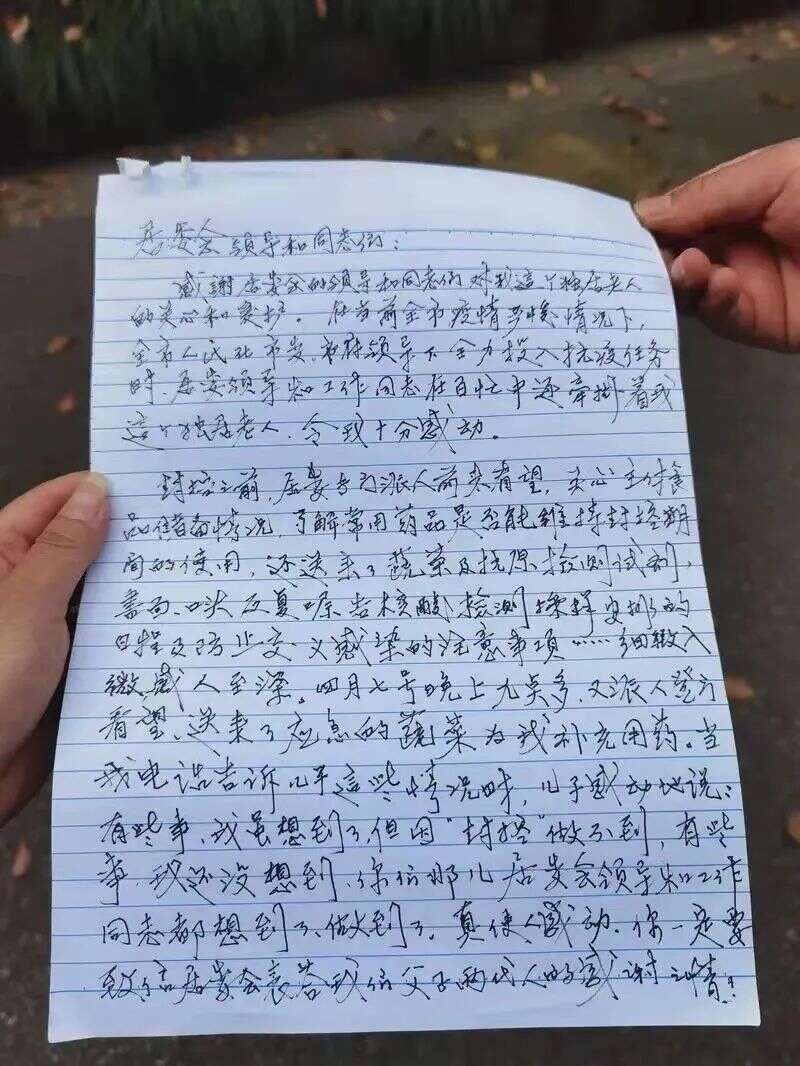 居委会领导和同志们：
感謝居委会的领导和同志们对我这个独居老人
的关心和爱护。在当前全市疫情严峻情况下，
全市人民在市委、市府领导下全力投入抗疫任务
时，居委领导和工作同志在百忙中还牵掛着我
这个独居老人，令我十分感动。
封控之前，居委专门派人前来看望，关心主付食
品储备情况，了解常用药品是否能维持封控期
间的使用，还送来了蔬菜及抗原检测试剂，
書面、口头反复嘱告核酸检测採样安排的
日程及防止交义感染的注意事项……细緻入
微，感人至深。四月七号晚上九点多，又派人登门
看望，送来了应急的蔬菜为我补充用药。当
我电话告诉儿子這些情况时，儿子感动地说：
有些事，我虽想到了，但因"封控"做不到，有些
事，我还没想到，你们那儿居委会领导和工作
同志都想到了、做到了。真使人感动。你一定要
致信居委会表答我们父子两代人的感谢之情！